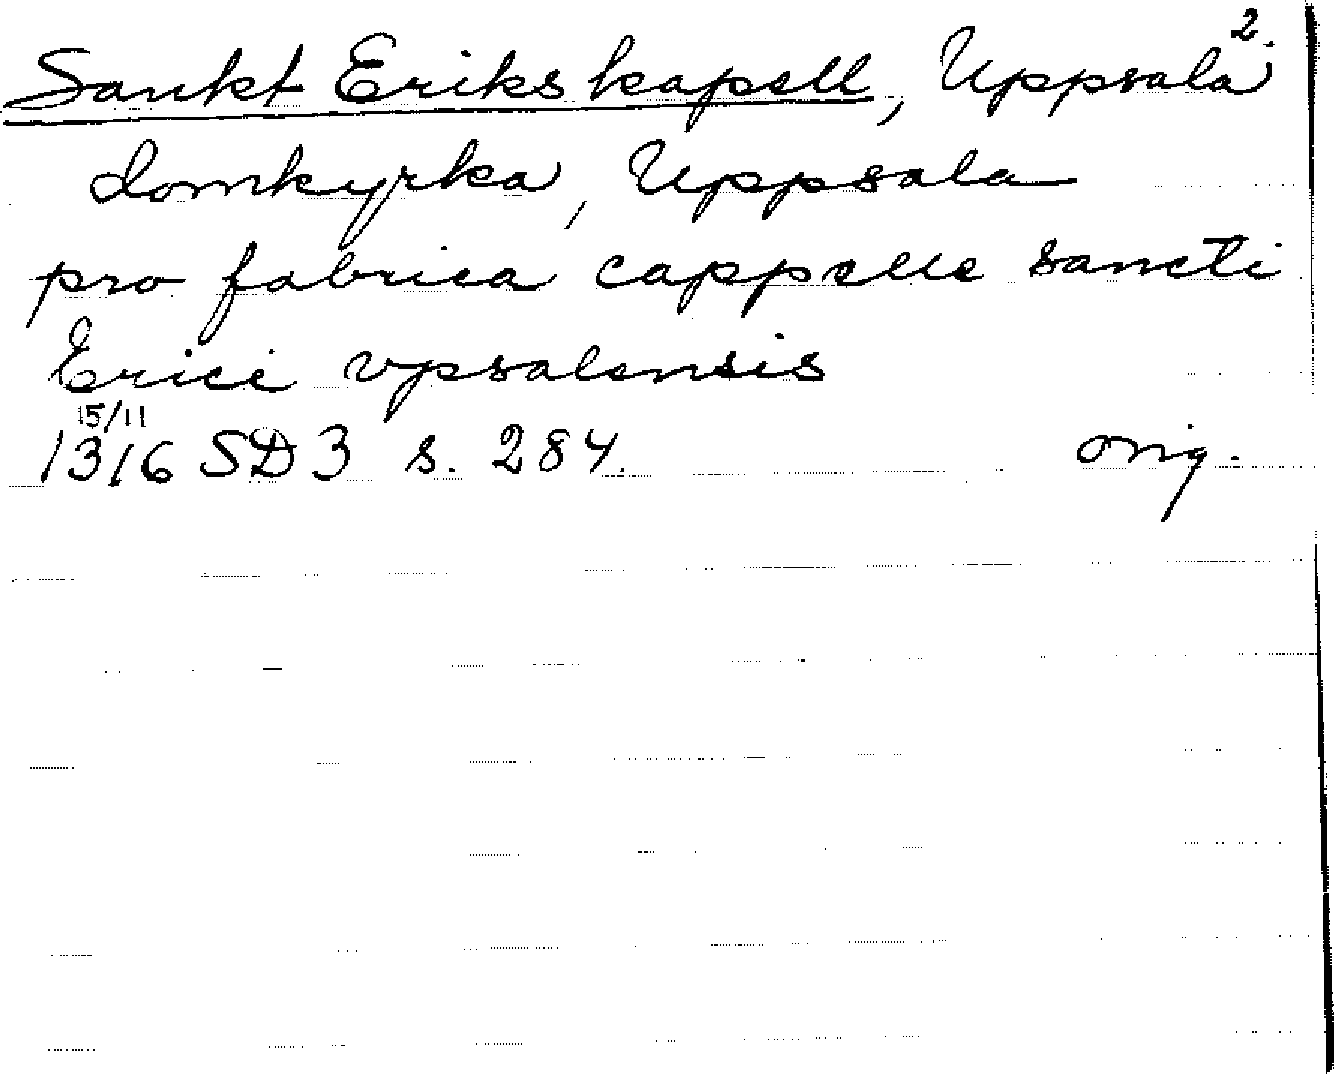 2.
Sankt Erikskapell, Uppsala
domkyrka, Uppsala
pro fabrica cappelle sancti
Erici vpsalensis
15/11
1316 SD 3 s. 284. orig.